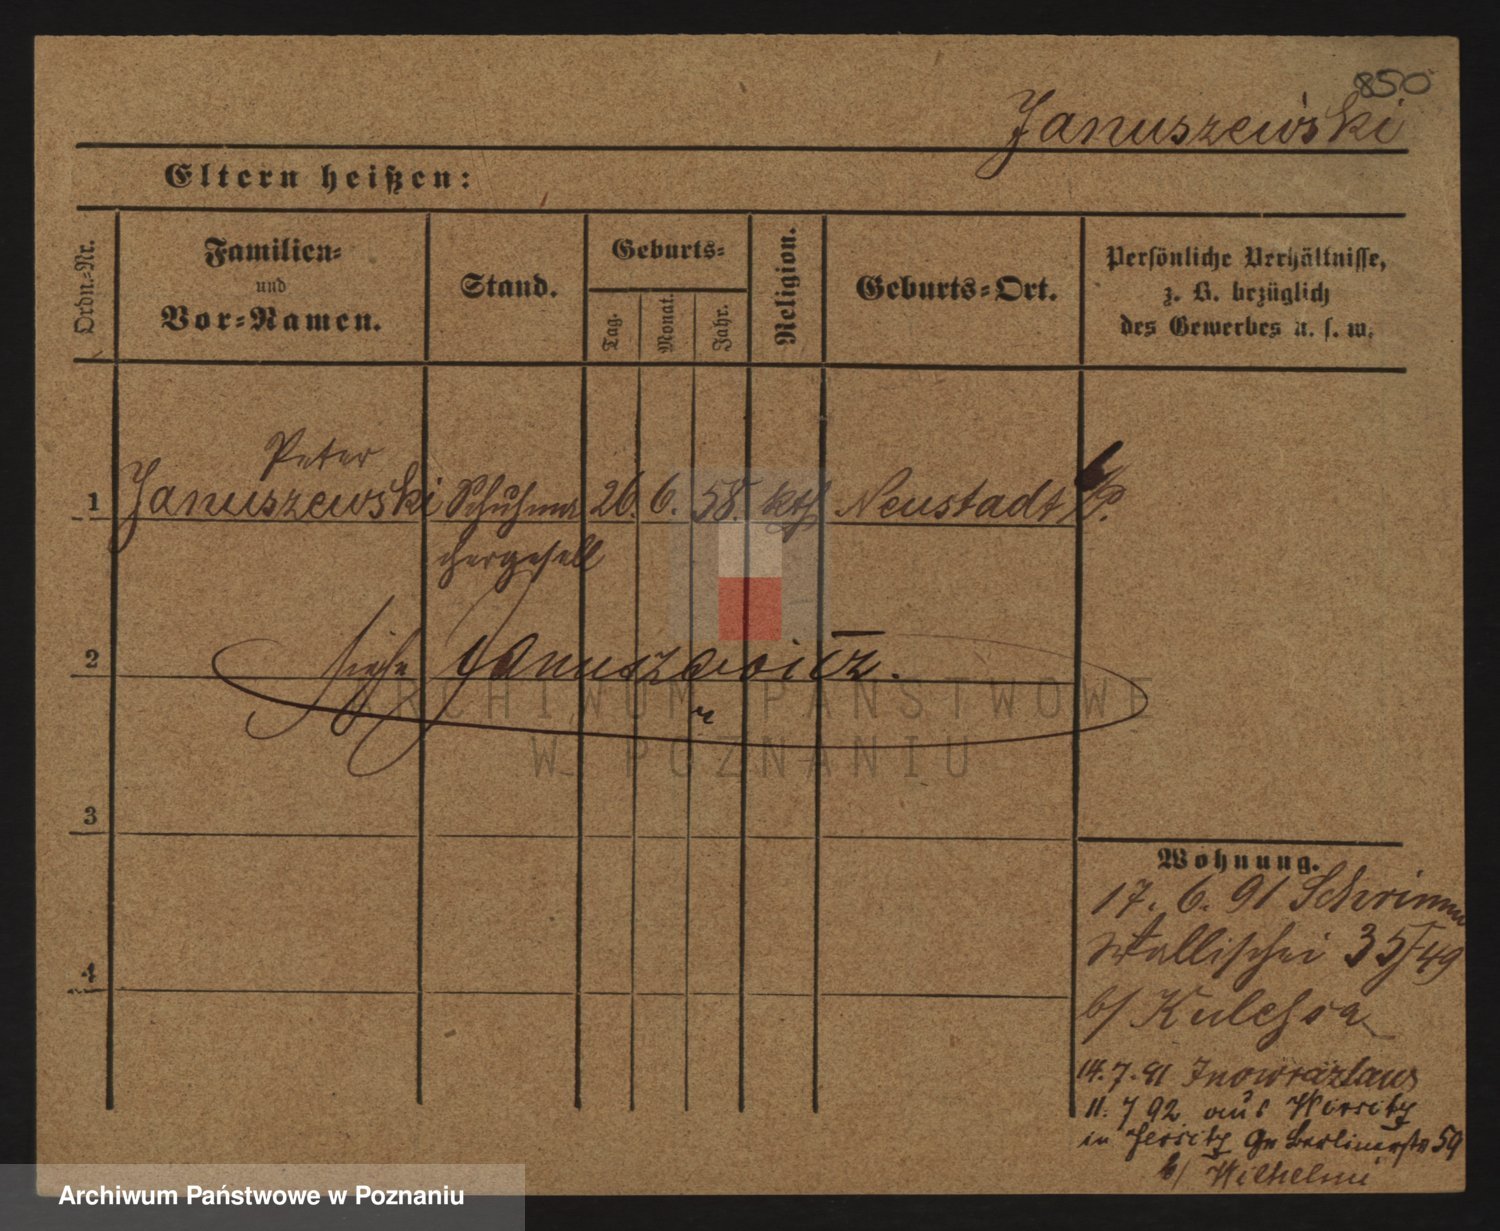 850
Januszewski
Eltern heißen:
Ordn.=Nr.
Familien=
und
Vor=Namen.
Stand.
Geburts=
Tag.
Monat.
Jahr.
Religion.
Geburts=Ort.
Persönliche Verhältnisse,
z. B. bezüglich
des Gewerbes u. s. w.
Peter
1 Januszewski Schuhma 26. 6. 58. kth Neustadt
chergesell
2 siehe Januszewicz.
3
4
Wohnung.
17. 6. 91 Schrimm
Wallischei 35/49
b/ Kulesza
14. 7. 91 Inowrazlaw
11. 7 92 aus Wirsitz
in Jersitz Gr Berlinerstr 59
b/ Wilhelmi
ARCHIWUM PAŃSTWOWE
W POZNANIU
Archiwum Państwowe w Poznaniu